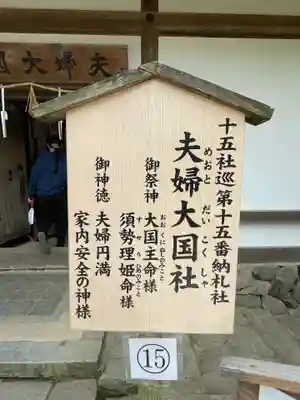 夫婦大国
十五社巡第十五番納札社
夫婦大国社
めおと だい こく しゃ
御祭神
大国主命様
おおくにぬしのみこと
須勢理姫命様
すせりひめのみこと
御神徳
夫婦円満
家内安全の神様
15